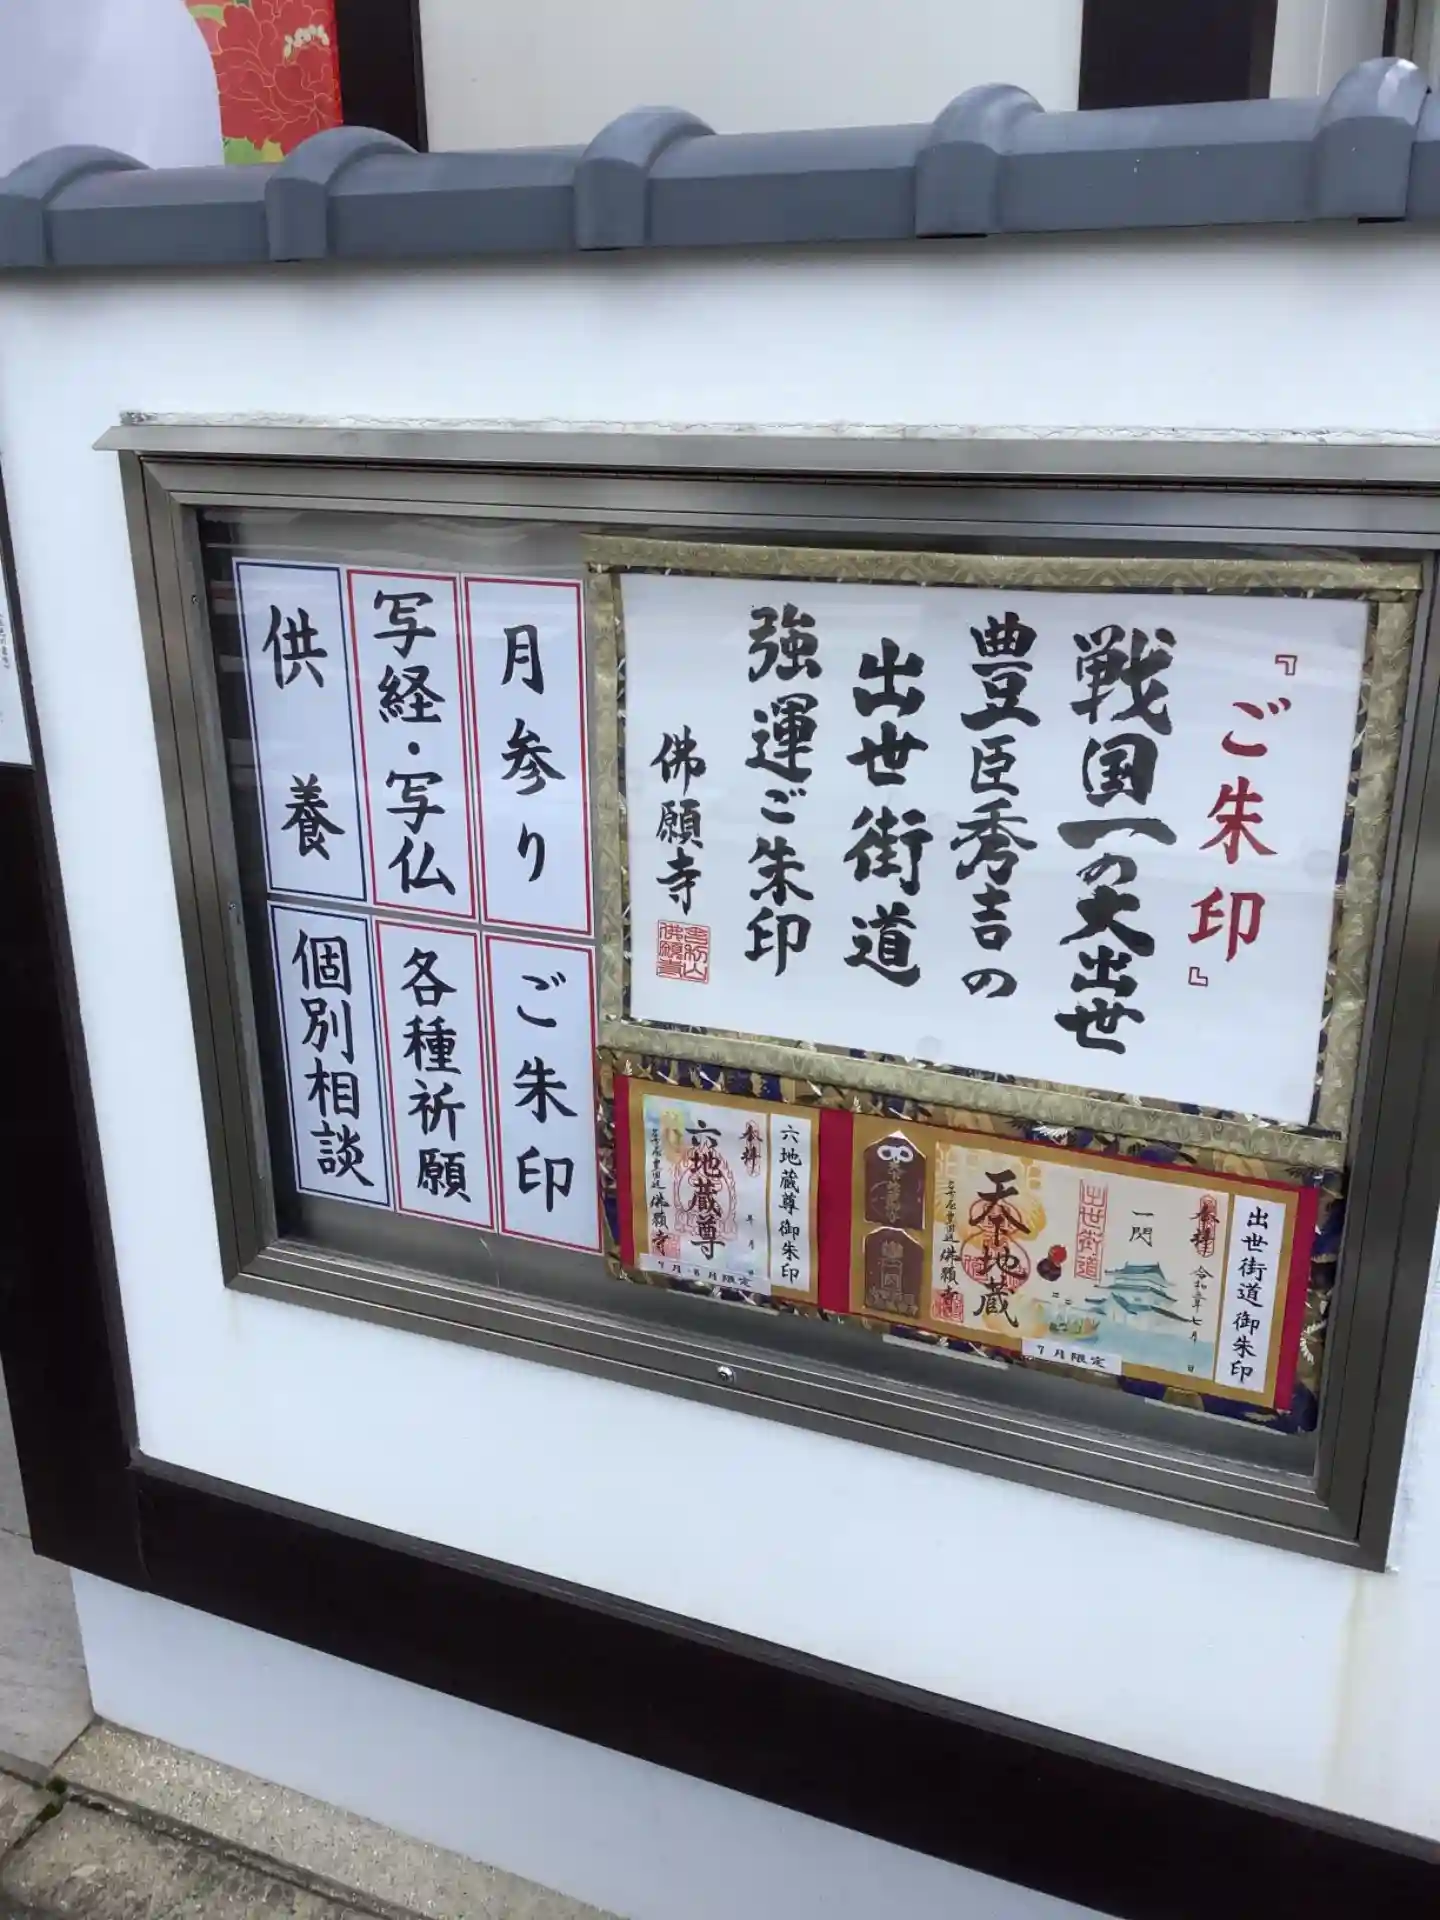 『ご朱印』
戦国一の大出世
豊臣秀吉の
出世街道
強運ご朱印
佛願寺
月参り
写経・写仏
供養
ご朱印
各種祈願
個別相談
出世街道御朱印
奉拝
令和五年七月 日
一閃
出世街道
天下地蔵
佛願寺
7月限定
六地蔵尊御朱印
奉拝
年 月 日
六地蔵尊
佛願寺
7月・8月限定